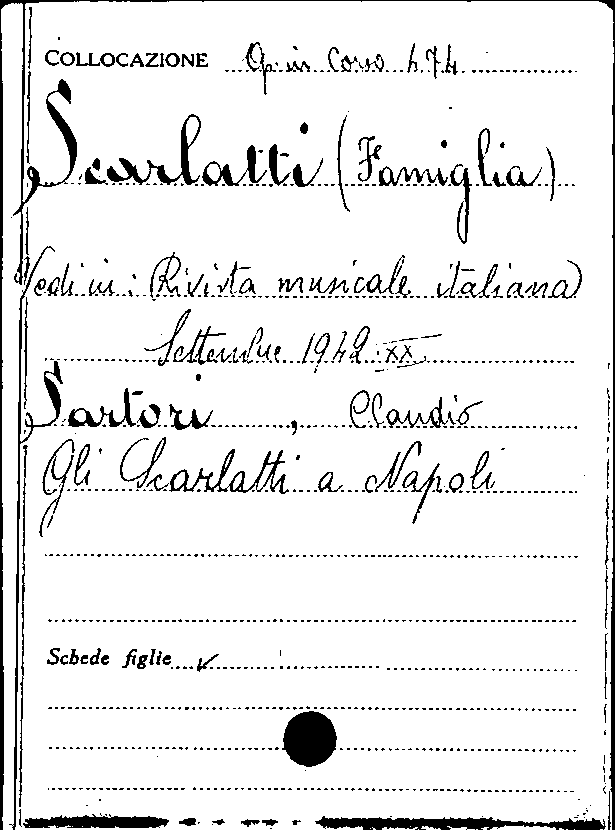 COLLOCAZIONE Op. in Corso 474
Scarlatti (Famiglia)
Vedi in: Rivista musicale italiana
Settembre 1942 XX
Sartori, Claudio
Gli Scarlatti a Napoli
Schede figlie